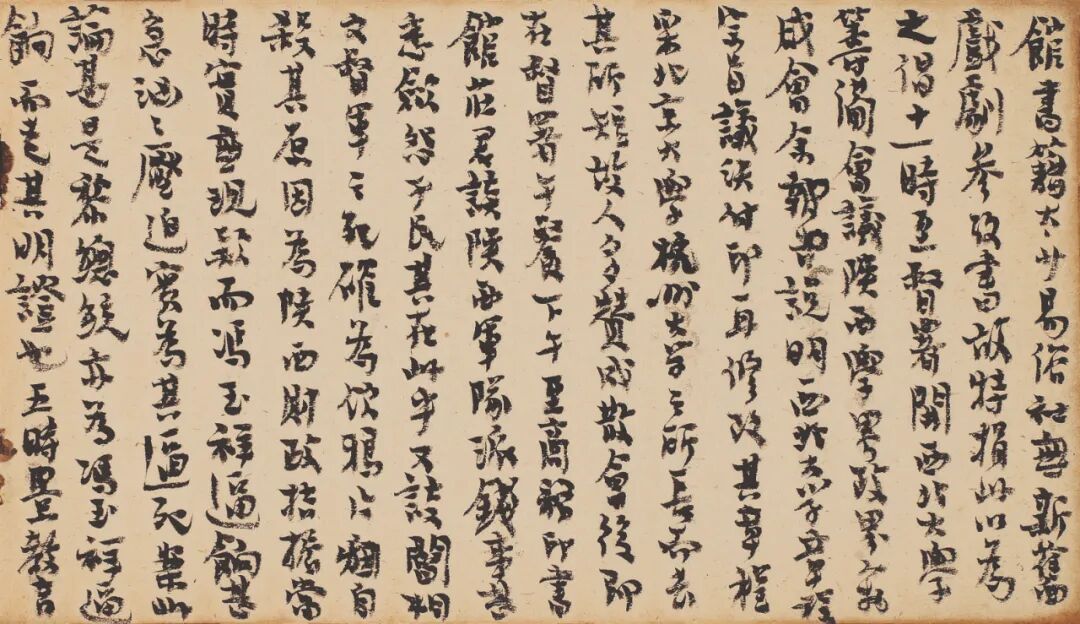 館書籍太少易俗社無新舊西
戲劇參改書故特捐此以為
之得十一時至督署開西北大學
籌備會議陝西學界政界皆
成會余辭中說明西北大學章程
宗旨議決付印再修改其章程
采北京大學杭州大學之所長而去
其所短故人人多贊成散會後即
在督署午餐下午至商務印書
館莊君談陝西軍隊派錢事甚
悉斂怨于民其在此乎又談閻相
文督軍之死確為伙鴉片烟自
殺其原因為陝西財政拮据當
時實無現款而馮玉祥逼餉甚
急池之壓迫實為其逼死藥此
論甚是黎總統亦為馮玉祥逼
餉而走其明證也五時畢教育